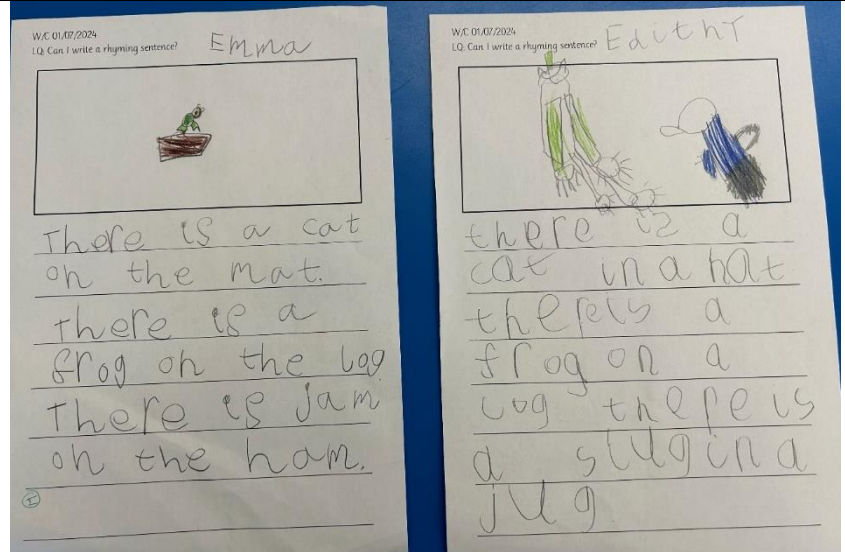 W/C 01/07/2024
LQ: Can I write a rhyming sentence?
Emma
There is a cat
on the mat.
There is a
frog on the log
There is jam
on the ham.
I
W/C 01/07/2024
LQ: Can I write a rhyming sentence?
EdithT
there is a
cat in a hat
thereis a
frog on a
log thereis
a slugina
jug